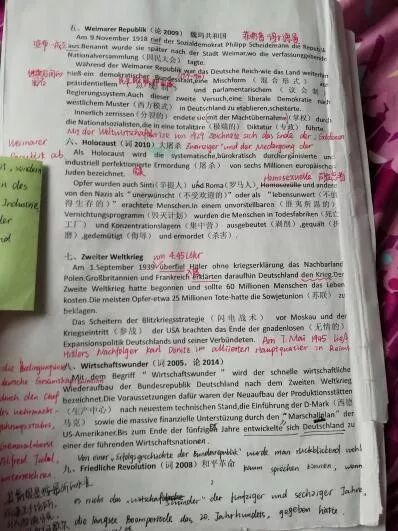 五、Weimarer Republik (论 2009) 魏玛共和国
Am 9.November 1918 rief der Sozialdemokrat Philipp Scheidemann die Republik
aus.Benannt wurde sie später nach der Stadt Weimar,wo die verfassungsgebende
Nationalversammlung (国民大会) tagte.
Während der Weimarer Republik war das Deutsche Reich-wie das Land weiterhin
hieß-ein demokratischer Bundesstaat,eine Mischform (混合形式) aus
präsidentiellem und parlamentarischem (议会制)
Regierungssystem.Auch dieser zweite Versuch,eine liberale Demokratie nach
westlichem Muster (西方模式) in Deutschland zu etablieren,scheiterte.
Innerlich zerrissen (分裂的) endete sie mit der Machtübernahme (掌权) durch
die Nationalsozialisten,die in eine totalitäre (极端的) Diktatur (专政) führte.
Mit der Weltwirtschaftskrise von 1929 zeichnete sich das Ende der "Goldenen
Zwanziger" und der Niedergang der
Weimarer
Republik ab.
六、Holocaust (词 2010) 大屠杀
Als Holocaust wird die systematische,bürokratisch durchorganisierte und
industriell perfektionierte Ermordung (屠杀) von sechs Millionen europäischen
Juden bezeichnet.
Homosexuelle
Opfer wurden auch Sinti (辛提人) und Roma (罗马人), Homosexuelle und andere
von den Nazis als "unerwünscht (不受欢迎的)" oder als "lebensunwert (不值
得生存的)" erachtete Menschen.In einem unvorstellbaren (难以预测的)
Vernichtungsprogramm (毁灭计划) wurden die Menschen in Todesfabriken (死亡
工厂) und Konzentrationslagern (集中营) ausgebeutet (剥削) ,gequält (折
磨) ,gedemütigt (侮辱) und ermordet (杀害).
七、Zweiter Weltkrieg
um 4.45 Uhr
Am 1.September 1939 überfiel Hitler ohne kriegserklärung das Nachbarland
Polen.Großbritannien und Frankreich erklärten daraufhin Deutschland den Krieg.Der
Zweite Weltkrieg hatte begonnen und sollte 60 Millionen Menschen das Leben
kosten.Die meisten Opfer-etwa 25 Millionen Tote-hatte die Sowjetunion (苏联) zu
beklagen.
Das Scheitern der Blitzkriegsstrategie (闪电战术) vor Moskau und der
Kriegseintritt (参战) der USA brachten das Ende der gnadenlosen (无情的)
Expansionspolitik Deutschlands und seiner Verbündeten.
Am 7. Mai 1945 ließ
Hitlers Nachfolger Karl Dönitz im alliierten Hauptquartier in Reims
die Bedingungslose
八、Wirtschaftswunder (词 2005, 论 2014)
Mit dem Begriff "Wirtschaftswunder" wird der schnelle wirtschaftliche
Wiederaufbau der Bundesrepublik Deutschland nach dem Zweiten Weltkrieg
bezeichnet.Die Voraussetzungen dafür waren der Neuaufbau der Produktionsstätten
(生产中心) nach neuestem technischen Stand,die Einführung der D-Mark (西德
马克) sowie die massive finanzielle Unterstützung durch den "Marschallplan" der
US-Amerikaner.Bis zum Ende der fünfziger Jahre entwickelte sich Deutschland zu
einer der führenden Wirtschaftsnationen.
Von einer „Erfolgsgeschichte der Bundesrepublik" wurde man rückblickend wohl
kaum sprechen können, wenn
九、Friedliche Revolution (词 2008) 和平革命
es nicht das „Wirtschaftswunder" der fünfziger und sechziger Jahre,
die längste Boomperiode des 20. Jahrhunderts, gegeben hätte.